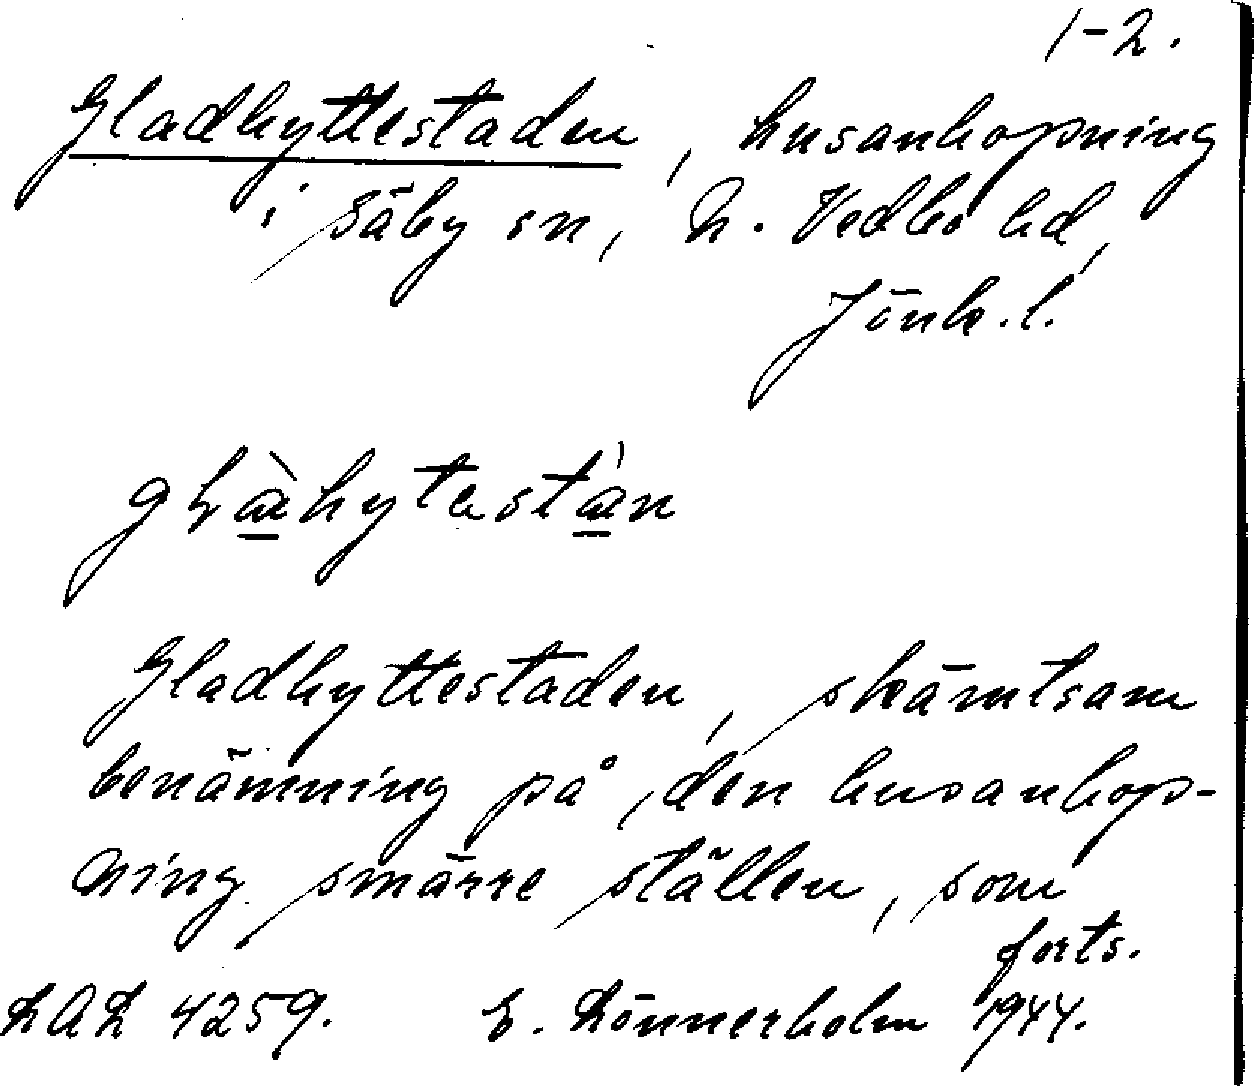 1-2.
Gladhyttestaden, husanhopning
i Säby sn, N. Vedbo hd,
Jönk. l.
Gladhyttestaden, skämtsam
benämning på den husanhop-
ning smärre ställen, som
forts.
LAL 4259. E. Lönnerholm 1944.